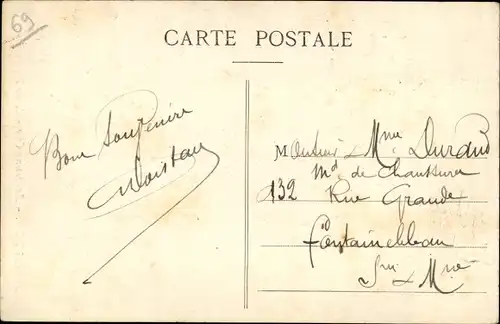 69
CARTE POSTALE
Bon Souvenir
Monsieur & Mme Durand
Md de Chaussures
132 Rue Grande
Fontainebleau
S & Mne